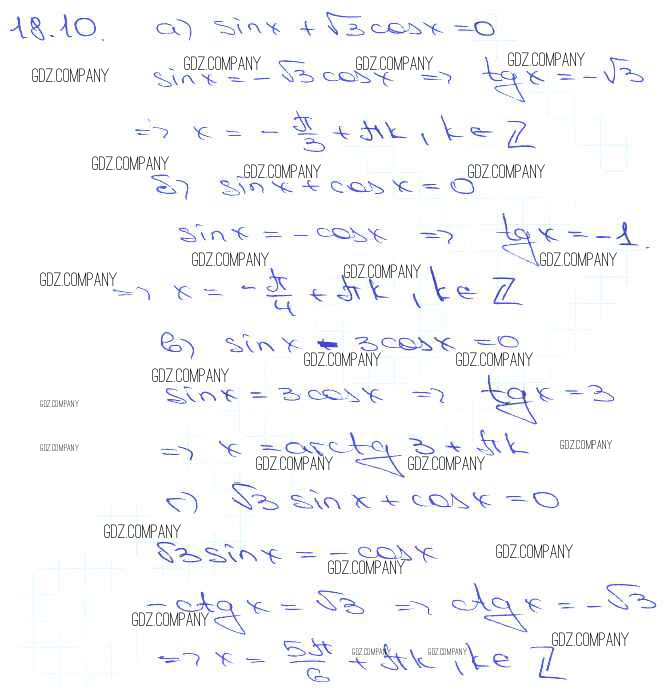 18.10. а) sinx + √3 cosx = 0
GDZ.COMPANY GDZ.COMPANY GDZ.COMPANY GDZ.COMPANY
sinx = - √3 cosx => tgx = - √3
=> x = - π/3 + πk, k ∈ ℤ
GDZ.COMPANY GDZ.COMPANY GDZ.COMPANY
б) sinx + cosx = 0
sinx = - cosx => tgx = - 1.
GDZ.COMPANY GDZ.COMPANY
GDZ.COMPANY GDZ.COMPANY
=> x = - π/4 + πk, k ∈ ℤ
в) sinx - 3cosx = 0
GDZ.COMPANY GDZ.COMPANY
GDZ.COMPANY
sinx = 3cosx => tgx = 3
GDZ.COMPANY
=> x = arctg 3 + πk
GDZ.COMPANY GDZ.COMPANY
GDZ.COMPANY GDZ.COMPANY
г) √3 sinx + cosx = 0
GDZ.COMPANY
√3 sinx = - cosx GDZ.COMPANY
GDZ.COMPANY
- ctgx = √3 => ctgx = - √3
GDZ.COMPANY GDZ.COMPANY
=> x = 5π/6 + πk, k ∈ ℤ
GDZ.COMPANY GDZ.COMPANY